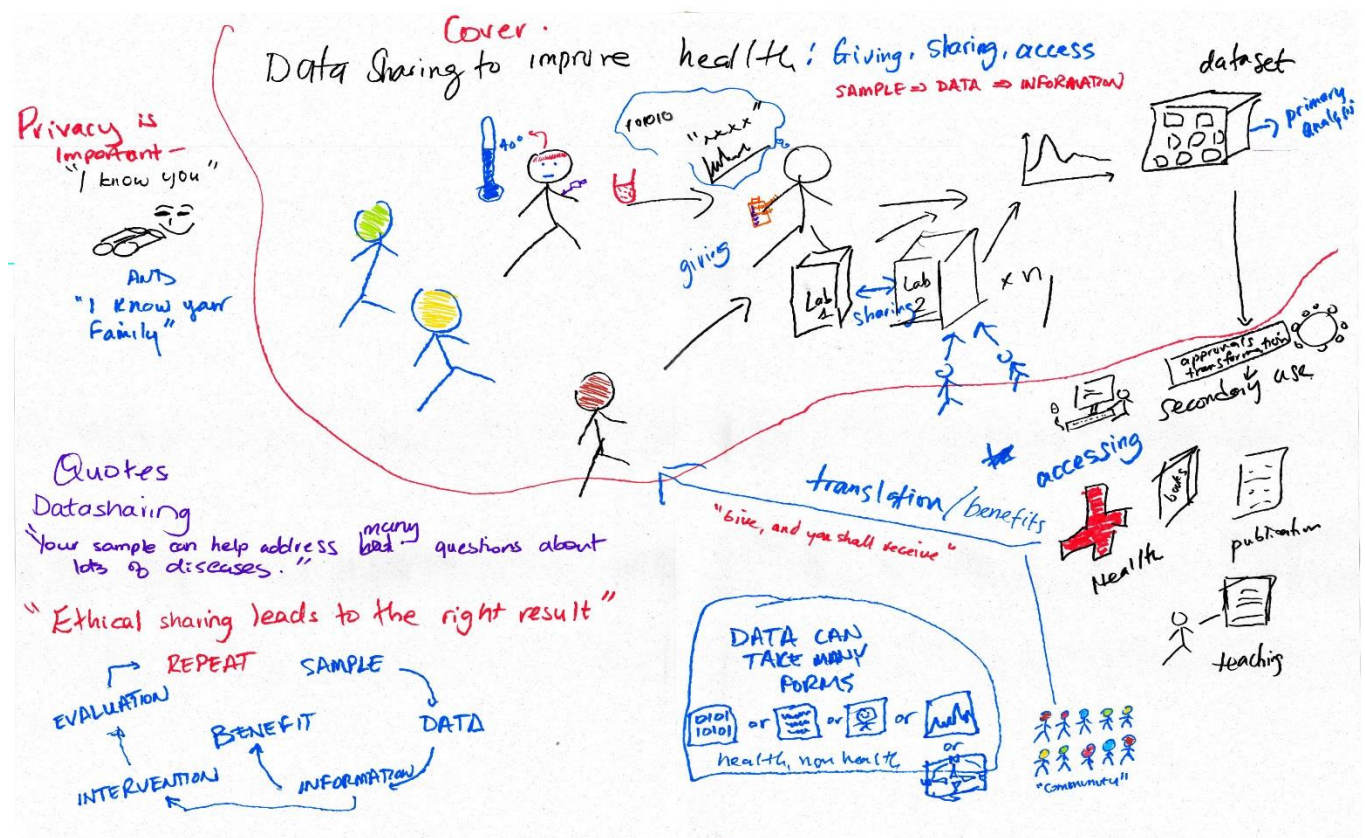 Cover.
Data Sharing to improve health: Giving, Sharing, access
SAMPLE => DATA => INFORMATION
dataset
primary
analysis
Privacy is
Important—
"I know you"
AND
"I know your
Family"
40°
101010
"xxxx"
giving
Lab
1
sharing
Lab
2
x n
approvals
transformation
secondary use
accessing
translation/benefits
"Give, and you shall receive"
Health
books
publication
teaching
Quotes
Datasharing
"Your sample can help address many questions about
lots of diseases."
"Ethical sharing leads to the right result"
REPEAT
SAMPLE
EVALUATION
BENEFIT
DATA
INTERVENTION
INFORMATION
DATA CAN
TAKE MANY
FORMS
0101
10101
or
or
or
or
health, non health
"Community"